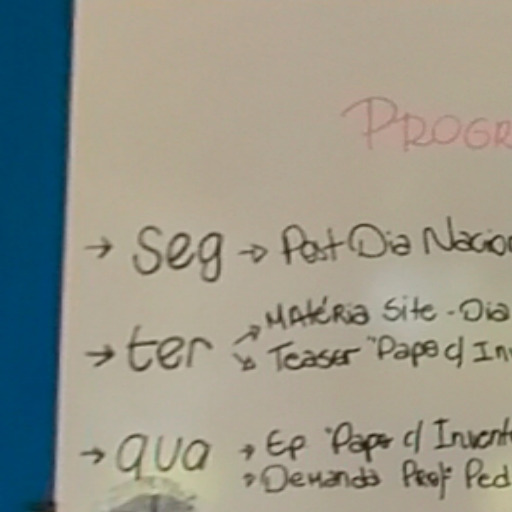 PROGR
→ seg → Post Dia Nacio
→ ter → MATÉRIA Site - Dia
→ Teaser "Papo c/ In
→ qua → Ep "Papo c/ Invent
→ Demanda Prof Ped